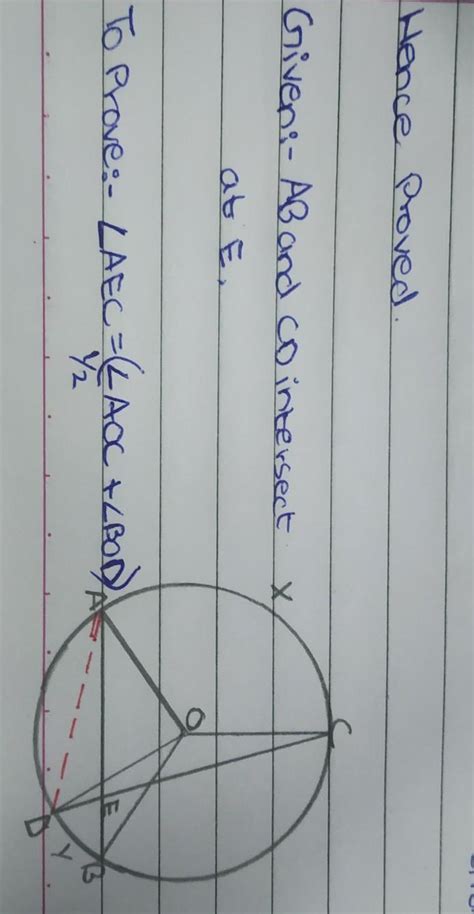 Hence Proved.
Given:- AB and CD intersect
at E.
To Prove:- ∠AEC = 1/2 (∠AOC + ∠BOD)
X
C
A
O
E
D
Y
B